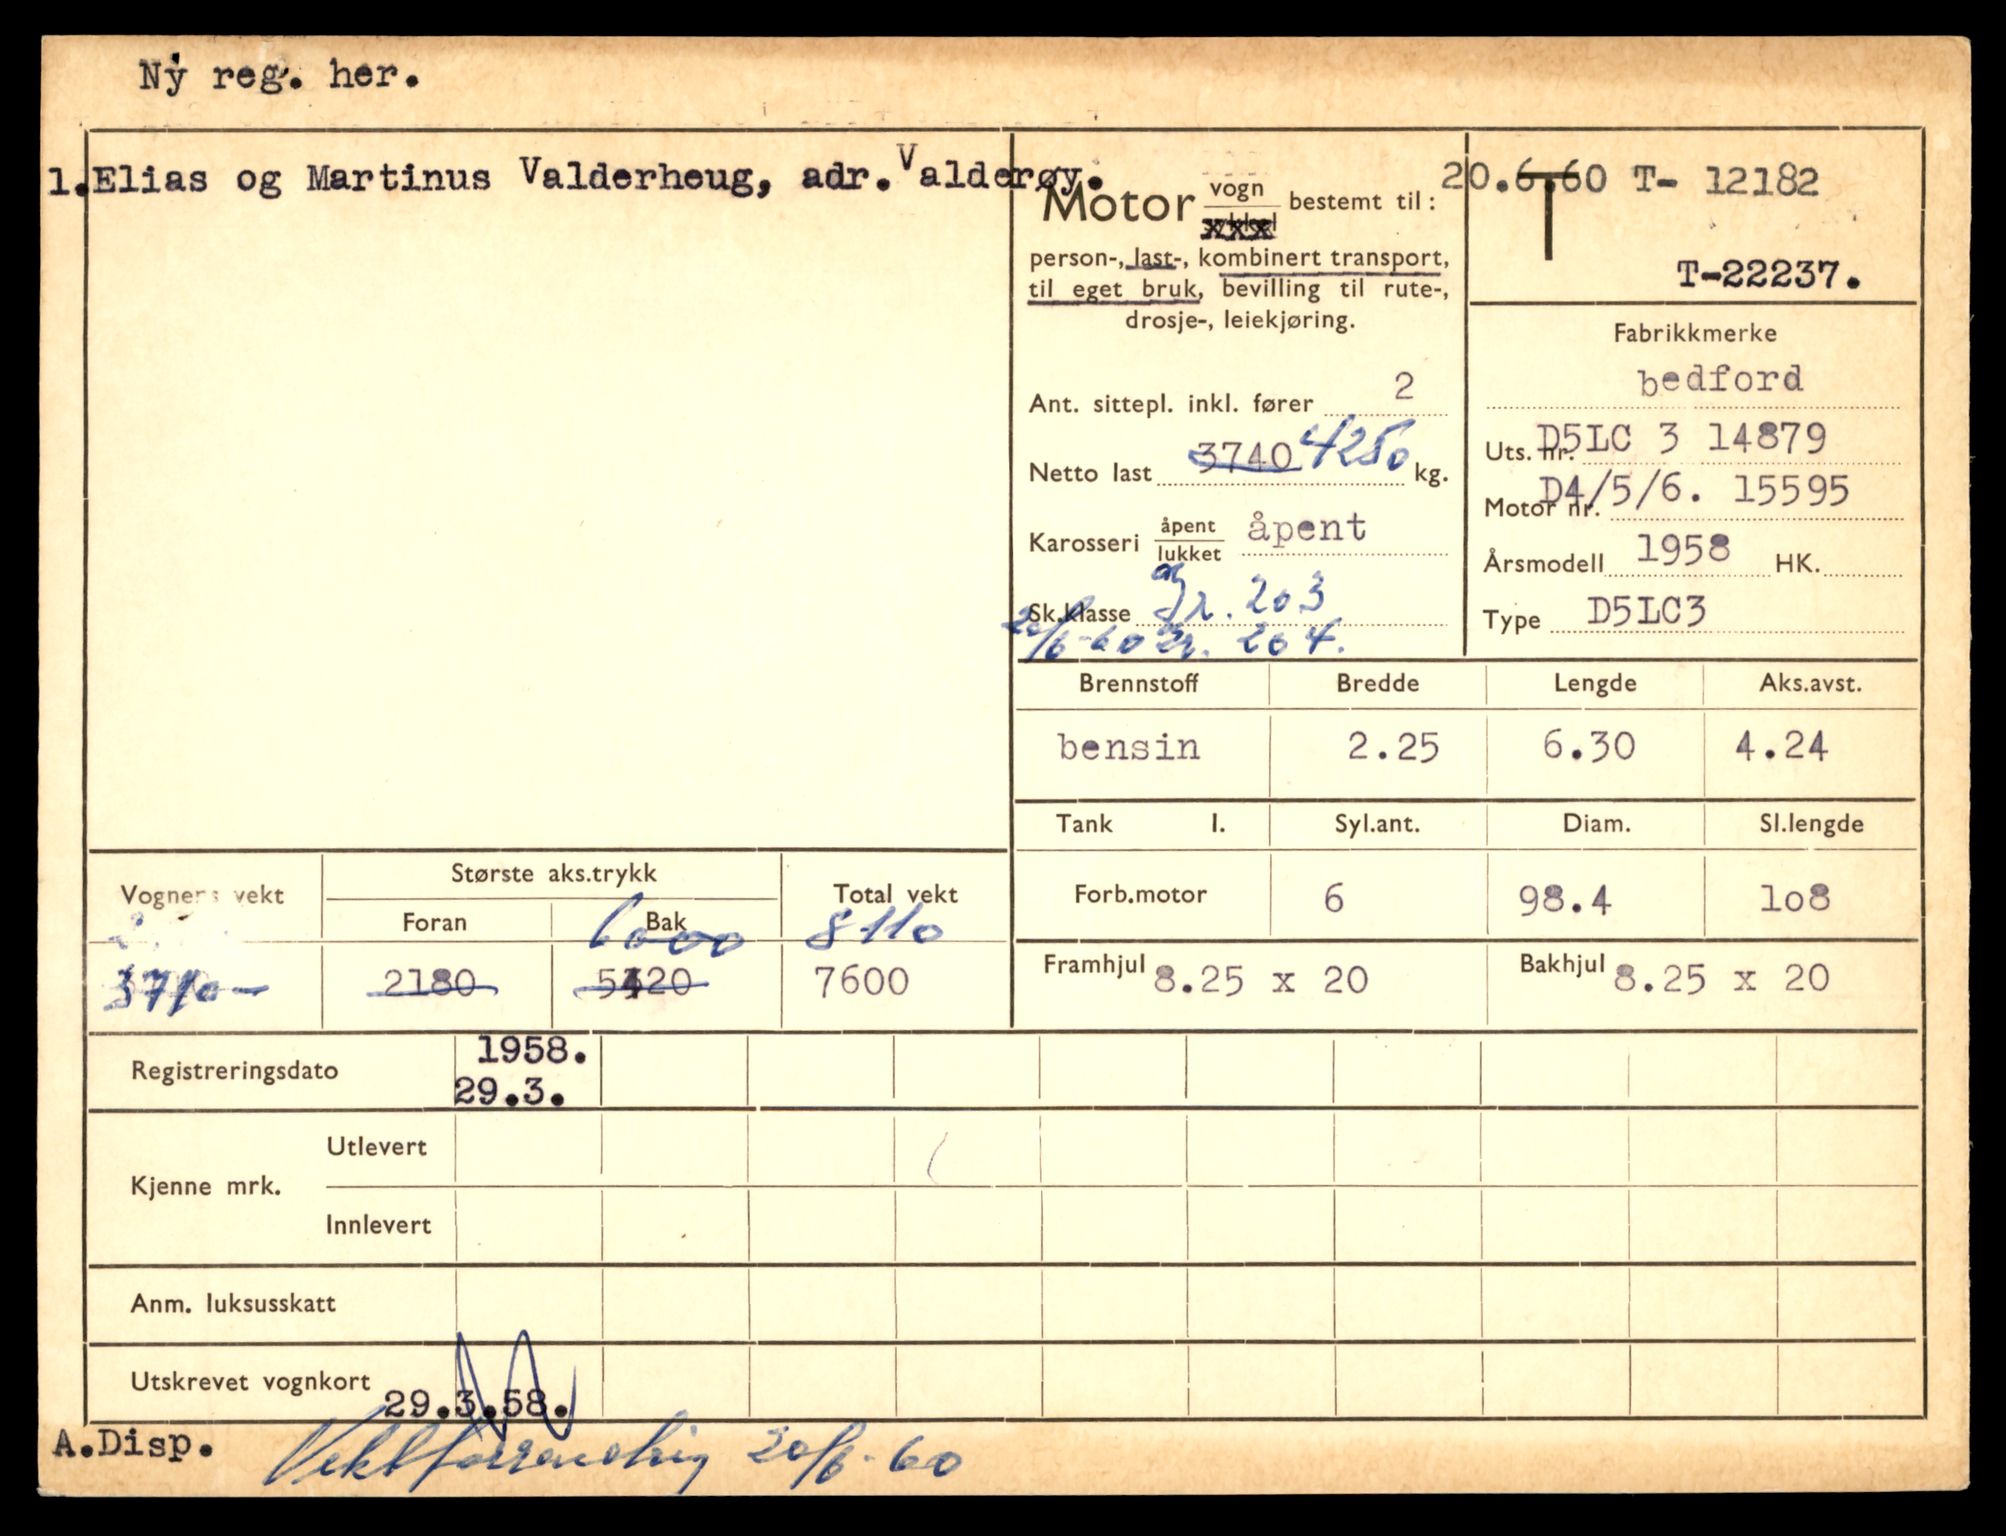 Ny reg. her.
1. Elias og Martinus Valderheug, adr. Valderøy.
Motor vogn xxx bestemt til:
person-, last-, kombinert transport,
til eget bruk, bevilling til rute-,
drosje-, leiekjøring.
Ant. sittepl. inkl. fører 2
Netto last 3740 4250 kg.
Karosseri åpent lukket åpent
Sk.klasse gr. 203
20/6-60 gr. 204.
20.6.60 T- 12182
T
T-22237.
Fabrikkmerke
bedford
Uts. nr. D5LC 3 14879
Motor nr. D4/5/6. 15595
Årsmodell 1958 HK.
Type D5LC3
Brennstoff Bredde Lengde Aks.avst.
bensin 2.25 6.30 4.24
Tank l. Syl.ant. Diam. Sl.lengde
Forb.motor 6 98.4 108
Framhjul 8.25 x 20 Bakhjul 8.25 x 20
Vognens vekt Største aks.trykk Total vekt
Foran Bak
6000 8110
2180 5420 7600
Registreringsdato 1958.
29.3.
Kjenne mrk. Utlevert
Innlevert
Anm. luksusskatt
Utskrevet vognkort 29.3.58.
A.Disp. Vektforrandring 20/6-60